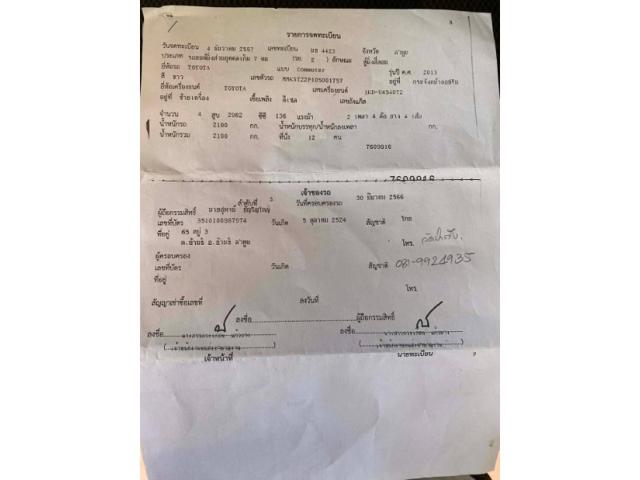 รายการจดทะเบียน
วันจดทะเบียน 4 ธันวาคม 2557 เลขทะเบียน นข 4423 จังหวัด ลำพูน
ประเภท รถยนต์นั่งส่วนบุคคลเกิน 7 คน (รย. 2 ) ลักษณะ ตู้นั่งสี่ตอน
ยี่ห้อรถ TOYOTA แบบ Commuter รุ่นปี ค.ศ. 2013
สี ขาว เลขตัวรถ อยู่ที่
ยี่ห้อเครื่องยนต์ TOYOTA เลขเครื่องยนต์
อยู่ที่ ซ้ายเครื่อง เชื้อเพลิง ดีเซล เลขถังแก๊ส
จำนวน 4 สูบ 2982 ซีซี 136 แรงม้า 2 เพลา 4 ล้อ ยาง 4 เส้น
น้ำหนักรถ 2100 กก. น้ำหนักบรรทุก/น้ำหนักลงเพลา กก.
น้ำหนักรวม 2100 กก. ที่นั่ง 12 คน
7609816
7609816
เจ้าของรถ
ลำดับที่ 3 วันที่ครอบครองรถ 30 มีนาคม 2566
ผู้ถือกรรมสิทธิ์
เลขที่บัตร 3510100387574 วันเกิด 5 ตุลาคม 2524 สัญชาติ ไทย
ที่อยู่ 65 หมู่ 3
ลำพูน โทร.
ผู้ครอบครอง
เลขที่บัตร วันเกิด สัญชาติ 081-9924935
ที่อยู่ โทร.
สัญญาเช่าซื้อเลขที่ ลงวันที่
ลงชื่อ ผู้ถือกรรมสิทธิ์
ลงชื่อ ลงชื่อ
เจ้าหน้าที่ นายทะเบียน